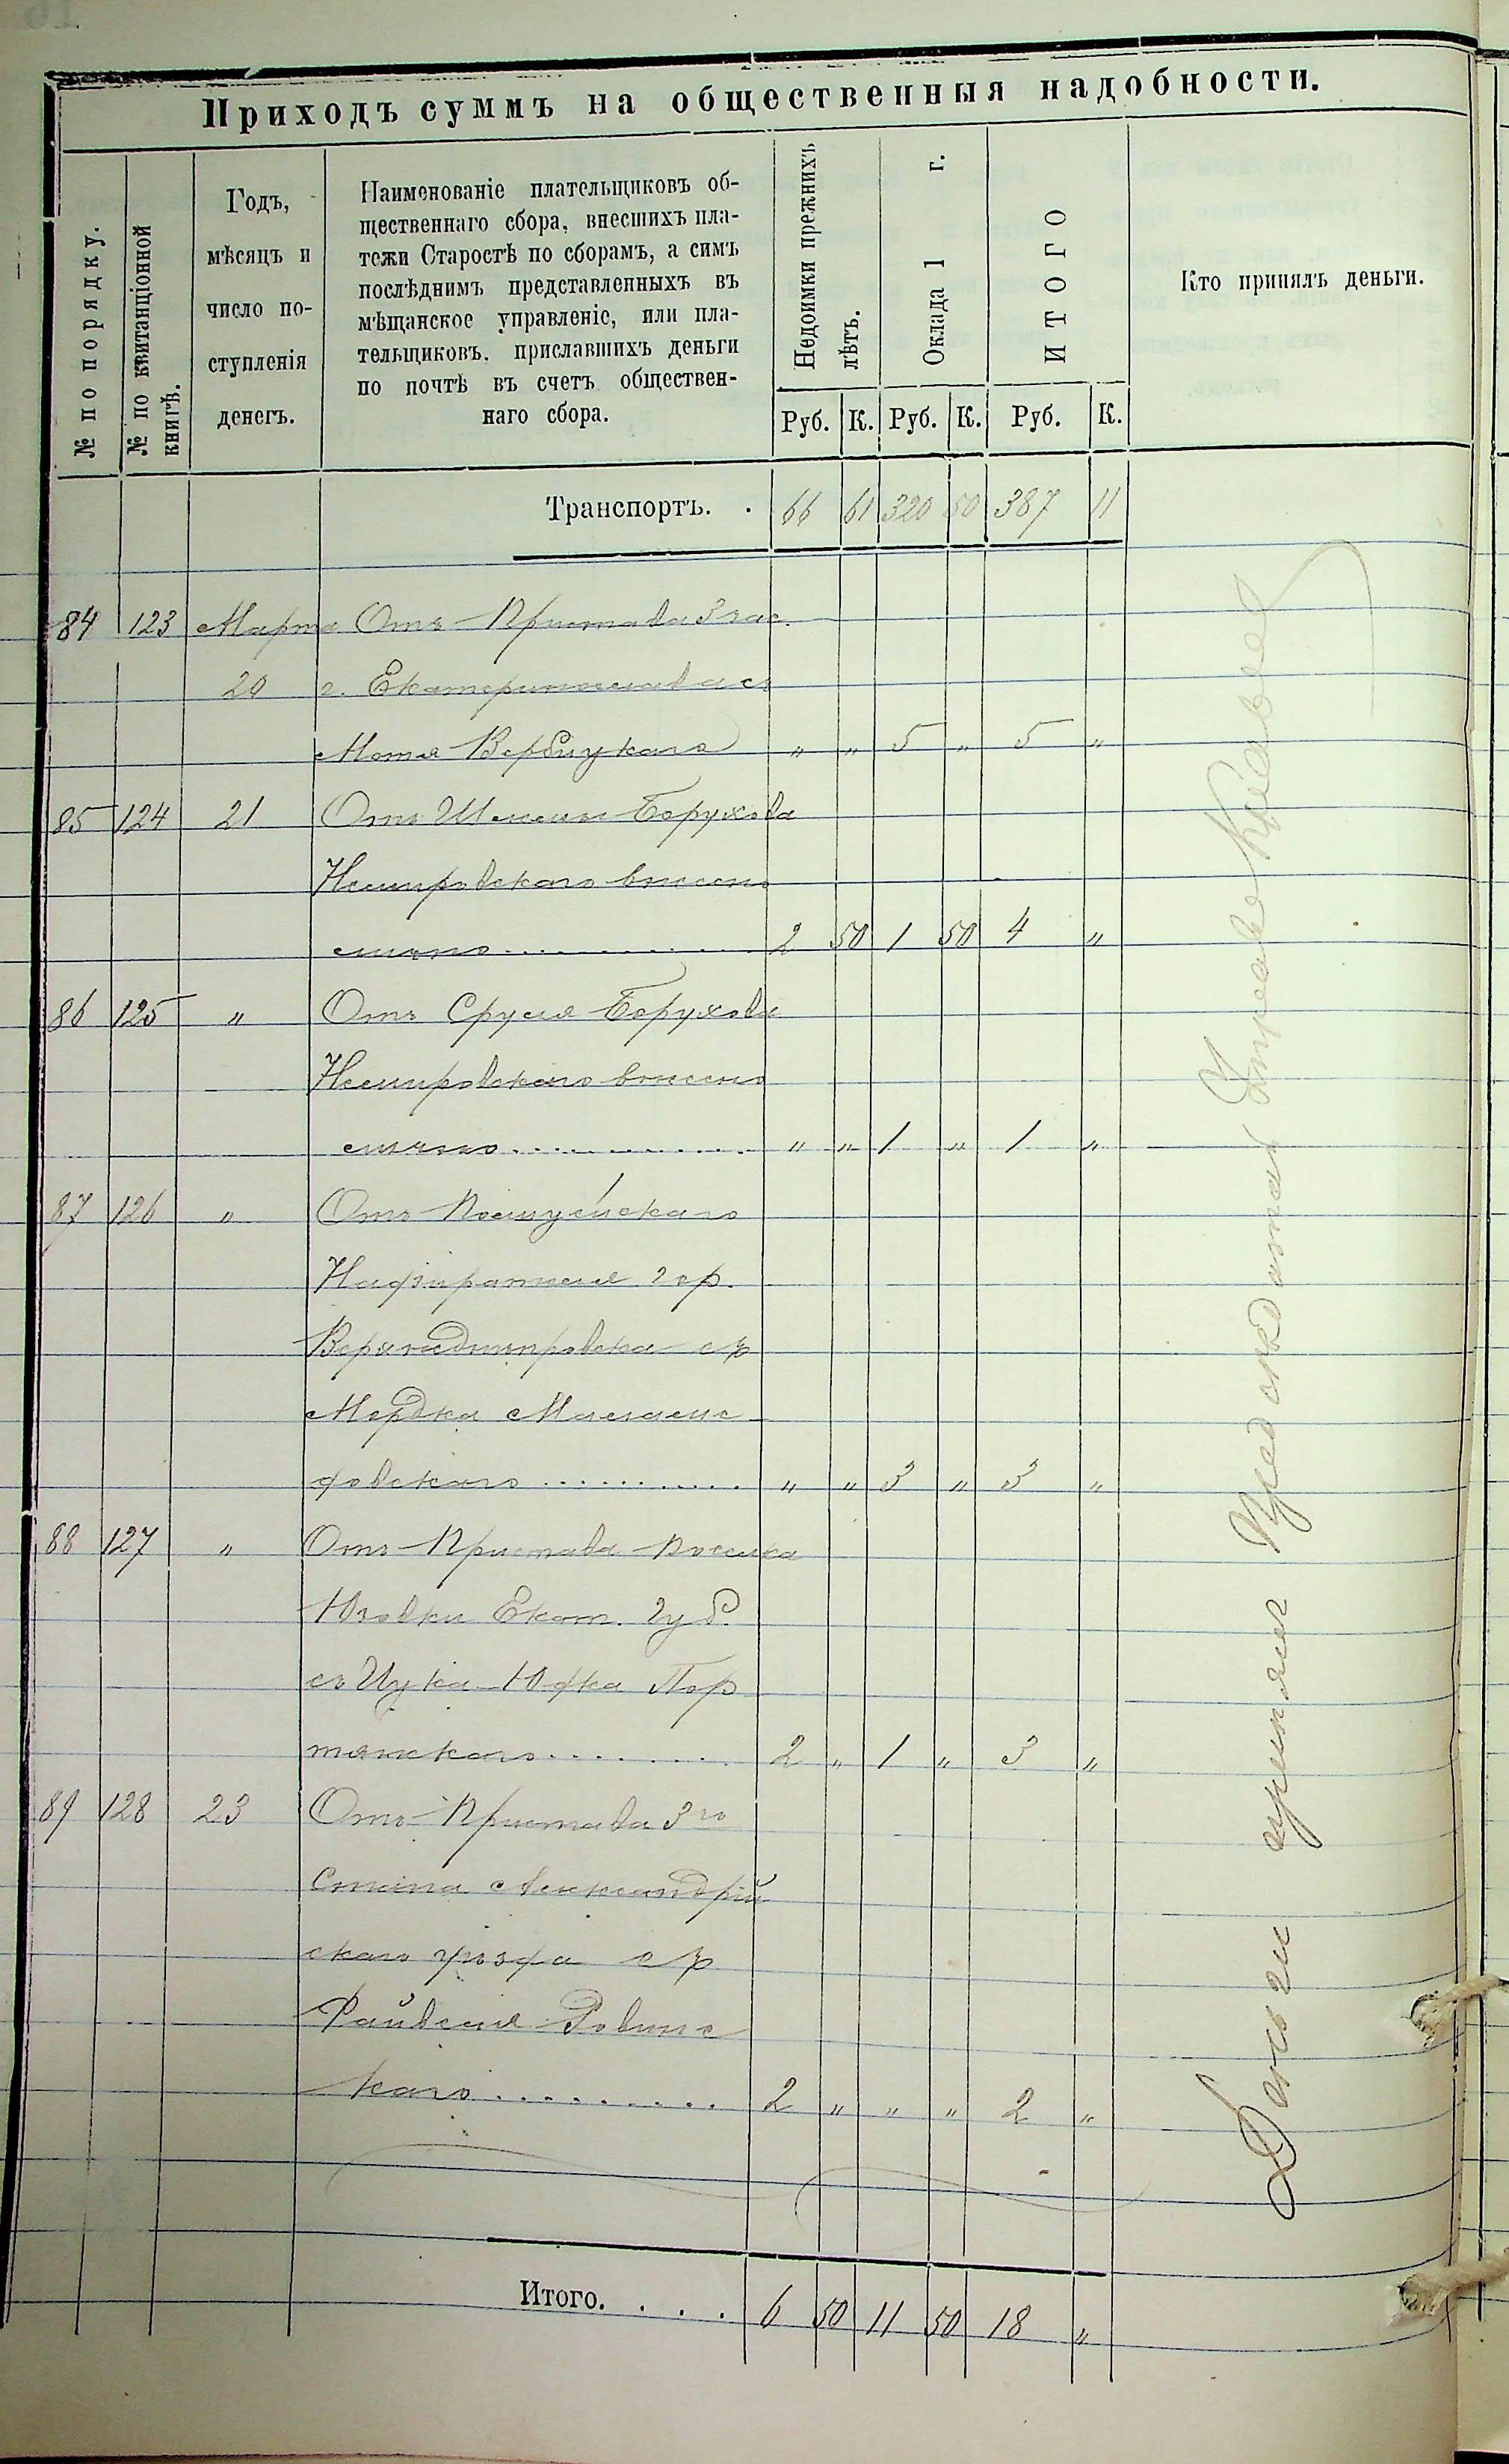 Приходъ суммъ на общественныя надобности.
№ по порядку.
№ по квитанціонной книгѣ.
Годъ,
мѣсяцъ и
число по-
ступленія
денегъ.
Наименованіе плательщиковъ об-
щественнаго сбора, внесшихъ пла-
тежи Старостѣ по сборамъ, а симъ
послѣднимъ представленныхъ въ
мѣщанское управленіе, или пла-
тельщиковъ, приславшихъ деньги
по почтѣ въ счетъ обществен-
наго сбора.
Недоимки прежнихъ лѣтъ.
Оклада 1 г.
ИТОГО
Кто принялъ деньги.
Руб. К. Руб. К. Руб. К.
Транспортъ. . 66 61 320 50 387 11
84 123 Марта Отъ Пристава 3 час.
20 г. Екатеринослава съ
Мотя Вербицкаго " " 5 " 5 "
85 124 21 Отъ Борухова
Немировскаго внесено
лично 2 50 1 50 4 "
86 125 " Отъ Сруля Борухова
Немировскаго внесено
лично " " 1 " 1 "
87 126 " Отъ Полицейскаго
Надзирателя гор.
Верхнеднѣпровска съ
Мордка
" " 3 " 3 "
88 127 " Отъ Пристава Поселка
Юзовки Екат. Губ.
съ Ицка Юдка Пор
тянскаго 2 " 1 " 3 "
89 128 23 Отъ Пристава 3го
Стана Александрій
скаго уѣзда съ
Файвеля Ровинс
каго 2 " " " 2 "
Итого. . . . 6 50 11 50 18 "
Деньги принялъ